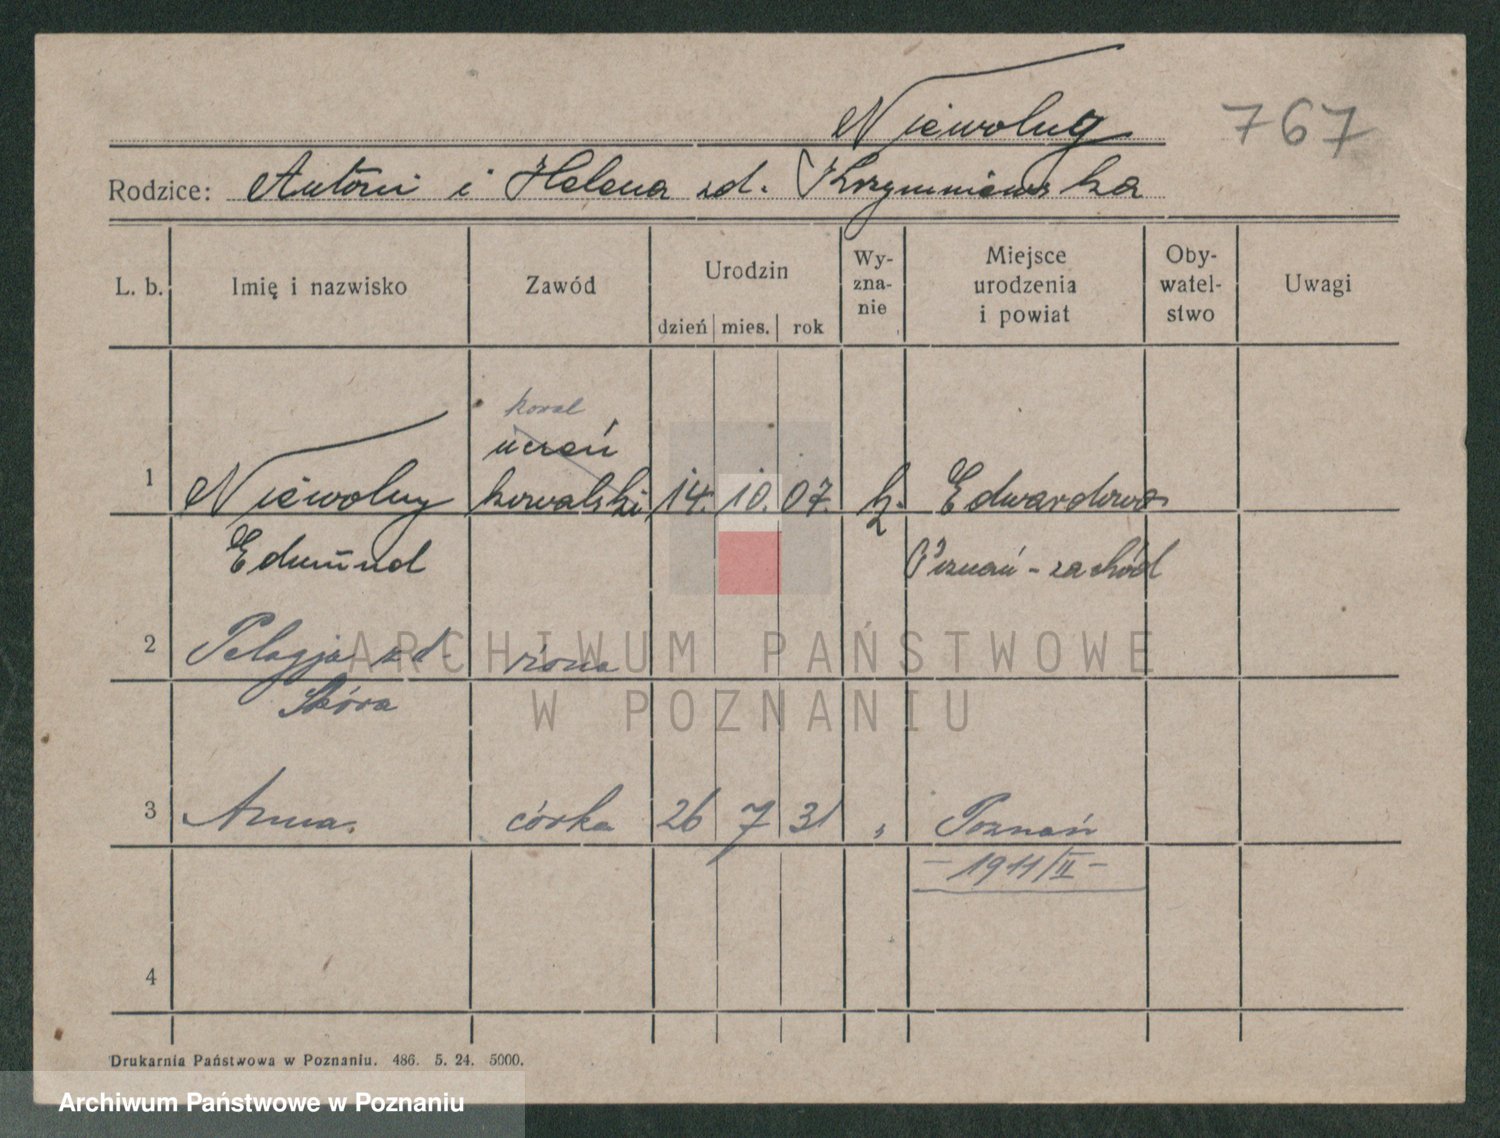 Niewolny 767
Rodzice: Antoni i Helena zd. Krzymniewska
L. b. Imię i nazwisko Zawód Urodzin dzień mies. rok Wy-zna-nie Miejsce urodzenia i powiat Oby-watel-stwo Uwagi
kowal
uczeń
1 Niewolny kowalski 14. 10. 07. k. Edwardowo
Edmund Poznań - zachód
2 Pelagja zd żona
Skóra
3 Anna. córka 26 7 31 " Poznań
- 1911/II -
4
Drukarnia Państwowa w Poznaniu. 486. 5. 24. 5000.
ARCHIWUM PAŃSTWOWE
W POZNANIU
Archiwum Państwowe w Poznaniu